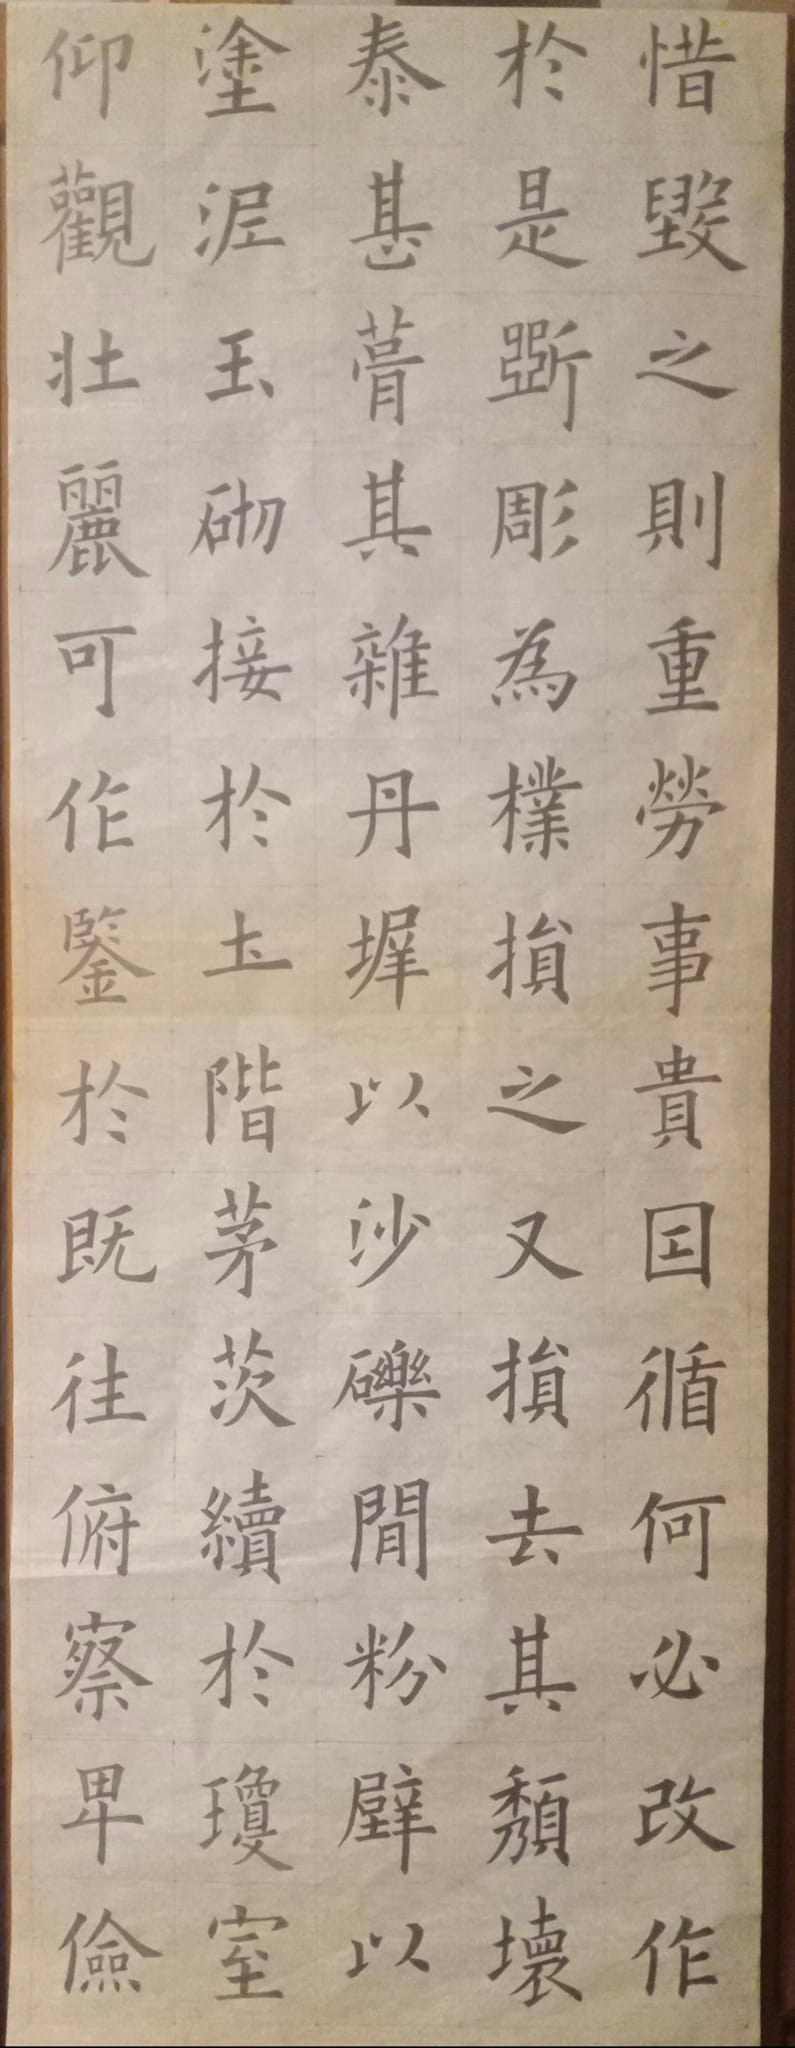 惜毀之則重勞事貴因循何必改作
於是斲彫為樸損之又損去其頹壞
泰甚葺其雜丹墀以沙礫間粉壁以
塗泥玉砌接於土階茅茨續於瓊室
仰觀壯麗可作鑒於既往俯察卑儉